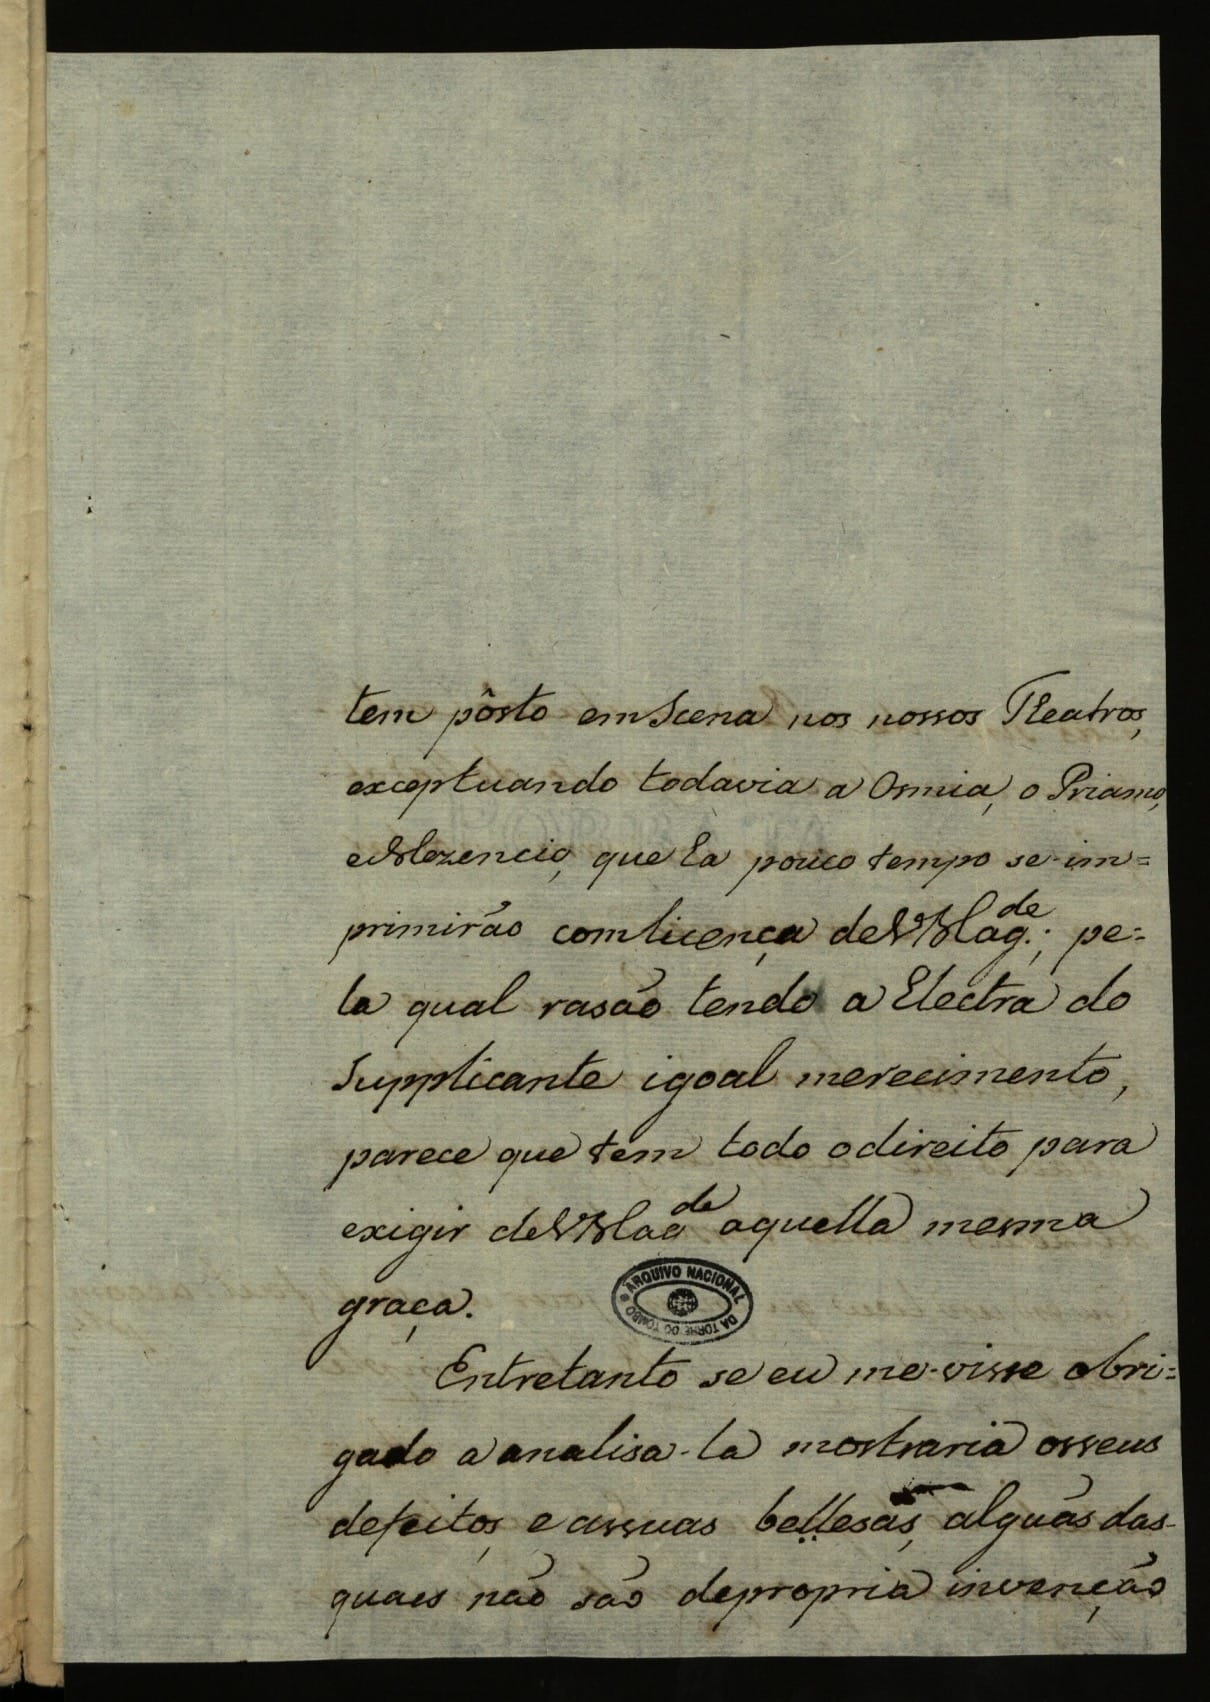 tem pôsto em Scena nos nossos Theatros,
exceptuando todavia a Osmia, o Priamo,
e Mezencio, que ha pouco tempo se im=
primirão com licença de V Mag.de; pe=
la qual rasão tendo a Electra do
Supplicante igoal merecimento,
parece que tem todo o direito para
exigir de V Magde aquella mesma
graça.
ARQUIVO NACIONAL
DA TORRE DO TOMBO
Entretanto se eu me-visse obri=
gado a analisa-la mostraria os seus
defeitos, e as suas bellesas, alguãs das
quaes não são de propria invenção